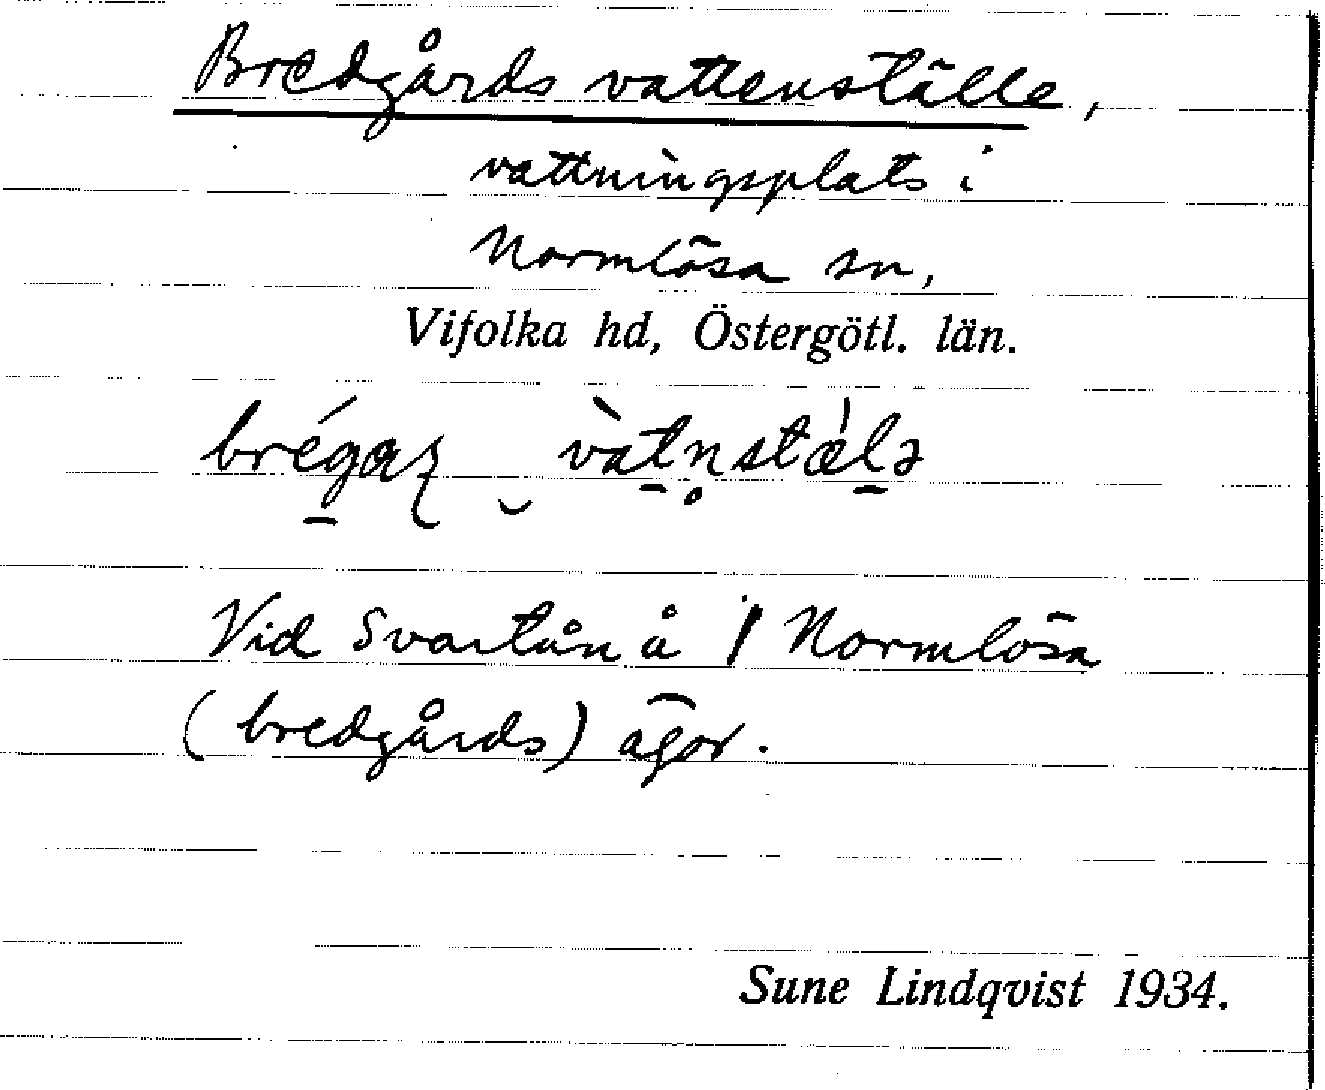 Bredgårds vattenställe,
vattningsplats i
Normlösa sn,
Vifolka hd, Östergötl. län.
Vid Svartån å / Normlösa
(bredgårds) ägor.
Sune Lindqvist 1934.